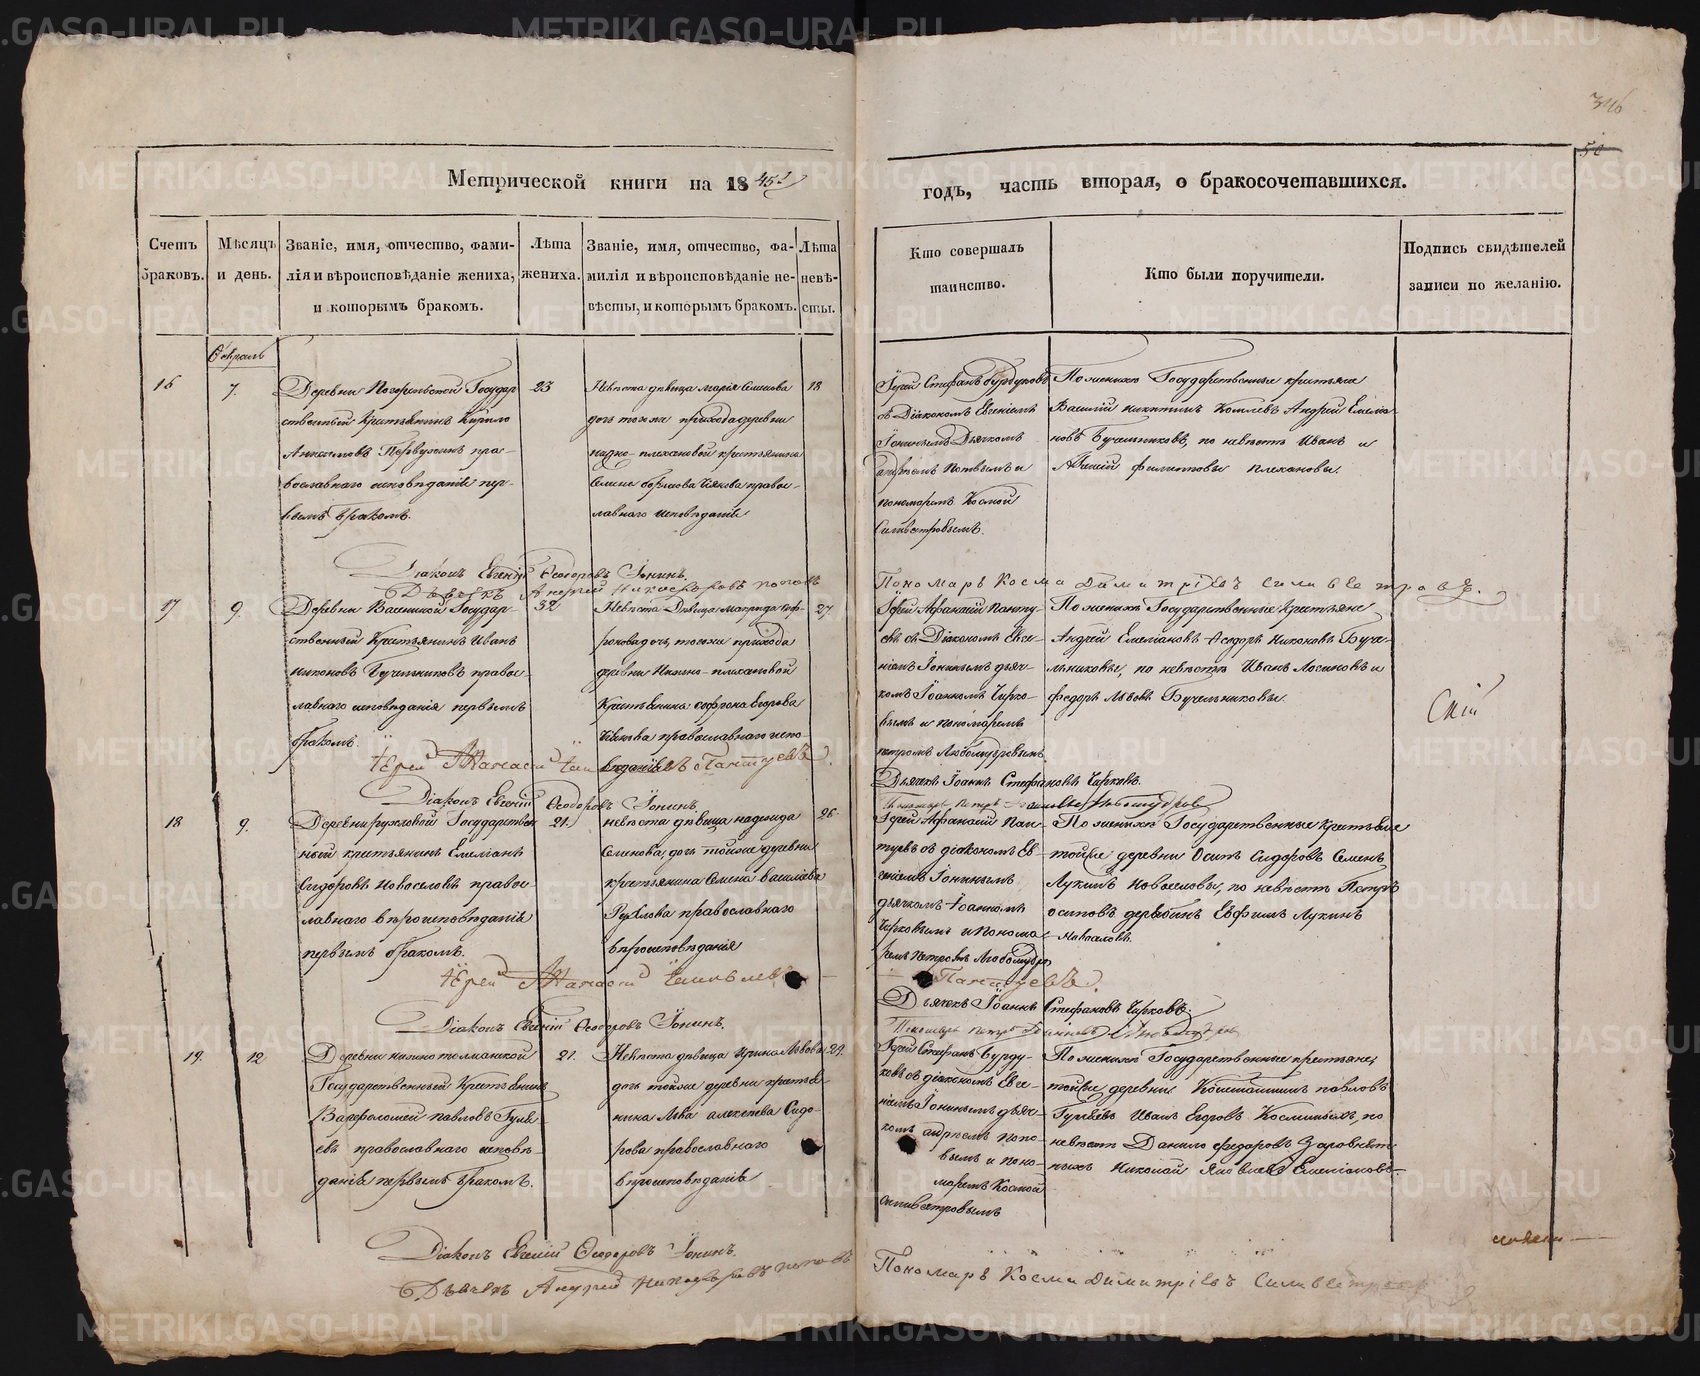 346
50
Метрической книги на 1845й
годъ, часть вторая, о бракосочетавшихся.
Счетъ браковъ.
Мѣсяцъ и день.
Званіе, имя, отчество, фами-
лія и вѣроисповѣданіе жениха,
и которымъ бракомъ.
Лѣта жениха.
Званіе, имя, отчество, фа-
милія и вѣроисповѣданіе не-
вѣсты, и которымъ бракомъ.
Лѣта невѣ-
сты.
Кто совершалъ
таинство.
Кто были поручители.
Подпись свидѣтелей
записи по желанію.
Февраль
16
7.
Деревни Государ
ственный крестьянинъ Кирило
Первухинъ пра-
вославнаго исповѣданія пер-
вымъ бракомъ.
23
Невѣста дѣвица Марія Семенова
дочь тогоже прихода деревни
крестьянина
Семена православ-
славнаго исповѣданія
18
Іерей Стефанъ Бурдуковъ
съ Діакономъ Евгеніемъ
Іонинымъ Дьячкомъ
Андреемъ Поповымъ и
пономаремъ Космой
Силивестровымъ.
По женихѣ Государственные крестьяне
Василій Никитинъ Андрей Емелья
новъ Бучельниковъ, по невѣстѣ Иванъ и
Филиповы Плехановы.
Діаконъ Евгеній Ѳеодоровъ Іонинъ.
Дьячекъ Андрей Никифоровъ Поповъ
Пономарь Косма Димитріевъ Силивестровъ.
17
9.
Деревни Государ-
ственный Крестьянинъ Иванъ
Никоновъ Бучельниковъ правос-
лавнаго исповѣданія первымъ
бракомъ.
32
Невѣста Дѣвица Матрида Соф-
ронова дочь, тогоже прихода
деревни Нижно-плехановой
Крестьянина Софрона Егорова
православнаго испо-
вѣданія
27
Іерей Афанасій Панту-
евъ съ Діакономъ Евге-
ніемъ Іонинымъ дьяч-
комъ Іоанномъ Чирко-
вымъ и пономаремъ
петромъ Любомудровымъ
По женихѣ Государственные Крестьяне
Андрей Емеліановъ Ѳеодоръ Никоновъ Буче-
льниковы, по невѣстѣ Иванъ Логиновъ и
Федоръ Львовъ Бучельниковы.
Іерей Афанасій Пантуевъ.
Діаконъ Евгеній Ѳеодоровъ Іонинъ.
Дьячекъ Іоаннъ Стефановъ Чирковъ.
Пономарь Петръ Любомудровъ
18
9.
Деревни рухловой Государствен
ный крестьянинъ Емеліанъ
Сидоровъ Новоселовъ правос-
лавнаго вѣроисповѣданія
первымъ бракомъ.
21.
невѣста дѣвица надежда
Семенова, дочь тойже деревни
крестьянина Семена Василіева
Рухлова православнаго
вѣроисповѣданія
26.
Іерей Афанасій Пан-
туевъ съ діакономъ Ев-
геніемъ Іонинымъ
дьячкомъ Іоанномъ
Чирковымъ и Понома-
ремъ Петромъ Любомудро
По женихѣ Государственные Крестьяне
тойже деревни Осипъ Сидоровъ Семенъ
Лукинъ Новоселовы, по невѣстѣ Петръ
осиповъ дерябинъ Евфимъ Лукинъ
Новоселовъ.
Іерей Афанасій Пантуевъ.
Діаконъ Евгеній Ѳеодоровъ Іонинъ.
Дьячекъ Іоаннъ Стефановъ Чирковъ.
Пономарь Петръ Любомудровъ
19.
12
Деревни нижнотолмацкой
Государственный Крестьянинъ
Варфоломей павловъ Гуля
евъ православнаго исповѣ-
данія первымъ бракомъ.
21.
Невѣста дѣвица Ирина Львова
дочь тойже деревни крестья-
нина Льва алексѣева Сидо-
рова православнаго
вѣроисповѣданія
29.
Іерей Стефанъ Бурду-
ковъ съ діакономъ Евге-
ніемъ Іонинымъ дьяч-
комъ андреемъ Попо-
вымъ и поно-
маремъ Космой
Силивестровымъ
По женихѣ Государственные крестьяне
тойже деревни Константинъ павловъ
Гуляевъ Иванъ Егоровъ Косминыхъ, по
невѣстѣ Данило федоровъ
Николай Яковлевъ Емеліановъ
Діаконъ Евгеній Ѳеодоровъ Іонинъ.
Дьячекъ Андрей Никифоровъ Поповъ
Пономарь Косма Димитріевъ Силивестровъ
METRIKI.GASO-URAL.RU